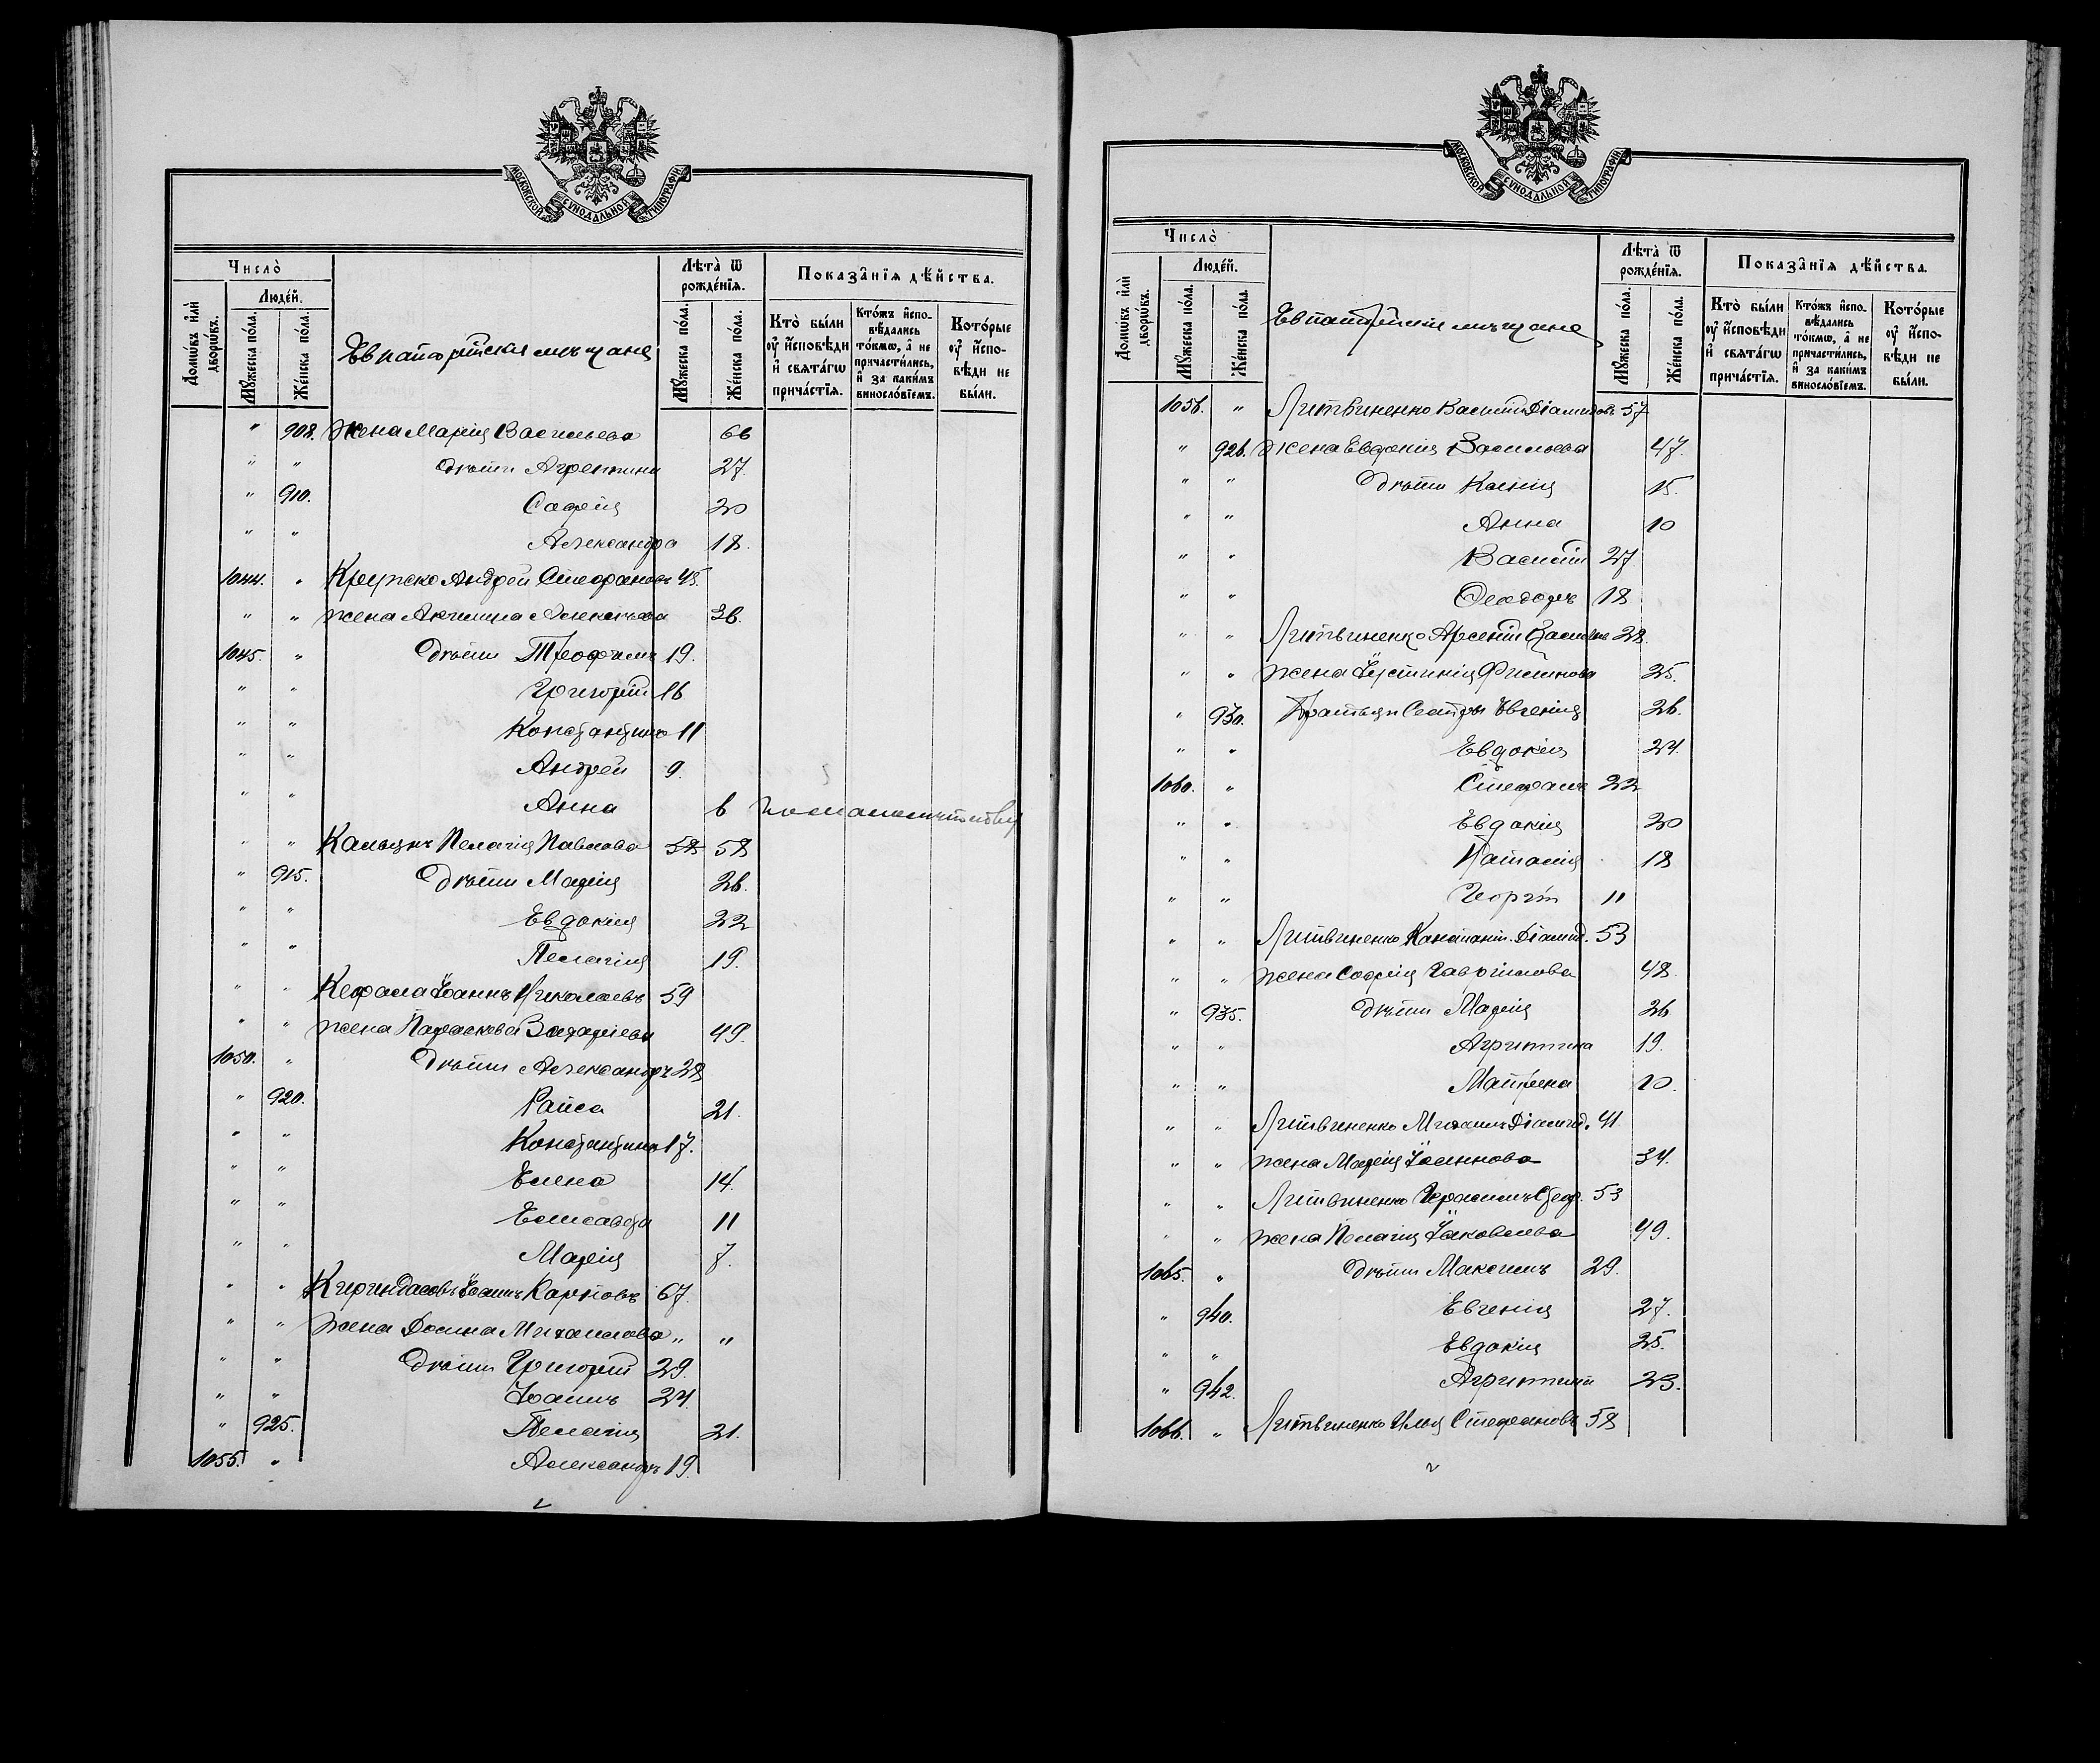 МОСКОВСКОЙ СУНОДАЛЬНОЙ ТИПОГРАФІИ
Число̀
Домѡ́въ и҆лѝ дворѡ́въ.
Люде́й.
Мꙋ́жеска по́ла.
Же́нска по́ла.
Евпаторійскія мѣщане
Лѣта̀ ѿ рожде́нїѧ.
Мꙋ́жеска по́ла.
Же́нска по́ла.
Показа̂нїѧ дѣ́йства.
Кто̀ бы́ли ᲂу҆ и҆сповѣди и҆ свѧта́гѡ прича́стїѧ.
Кто́жъ и҆спо-вѣ́дались то́кмѡ, а҆ не причасти́лись, и҆ за каки́мъ винослові́емъ.
Кото́рые ᲂу҆ и҆спо-вѣди не бы́ли.
" 908. Жена Марія Васильева 66
" " дѣти Агрепина 27.
" 910. Софія 20
" " Александра 18.
1044. " Андрей Стефановъ 45.
" " жена Акилина 36.
1045. " дѣти Трофимъ 19.
" " Григорій 16
" " Константинъ 11
" " Андрей 9.
" " Анна 6
" " Пелагія Павлова 58 58
" 915. Дѣти Марія 26.
" " Евдокія 22
" " Пелагія 19.
" " Кефала Іоаннъ Николаевъ 59
" " жена Параскева Захаріева 49.
1050. " Дѣти Александръ 28
" 920. Раиса 21.
" " Константинъ 17.
" " Елена 14.
" " Елисавета 11
" " Марія 7.
" " Іоаннъ Карповъ 67.
" " Жена Домна Михаилова " "
" " Дѣти Григорій 29.
" " Іоаннъ 24.
" 925. Пелагія 21.
1055. " Александръ 19.
МОСКОВСКОЙ СУНОДАЛЬНОЙ ТИПОГРАФІИ
Число̀
Домѡ́въ и҆лѝ дворѡ́въ.
Люде́й.
Мꙋ́жеска по́ла.
Же́нска по́ла.
Евпаторійскія мѣщане
Лѣта̀ ѿ рожде́нїѧ.
Мꙋ́жеска по́ла.
Же́нска по́ла.
Показа̂нїѧ дѣ́йства.
Кто̀ бы́ли ᲂу҆ и҆сповѣди и҆ свѧта́гѡ прича́стїѧ.
Кто́жъ и҆спо-вѣ́дались то́кмѡ, а҆ не причасти́лись, и҆ за каки́мъ винослові́емъ.
Кото́рые ᲂу҆ и҆спо-вѣди не бы́ли.
1056. " Литвиненко Василій Діамидовъ 57
" 926. жена Евфимія Васильева 47.
" " дѣти Ксенія 15.
" " Анна 10
" " Василій 27
" " Ѳеодоръ 18
" " Литвиненко Арсеній Василіев 28.
" " жена Іустинія Филипова 25.
" 930. Братья и Сестры Евгенія 26.
" " Евдокія 24.
1060. " Стефанъ 22
" " Евдокія 20
" " Наталія 18
" " Георгій 11
" " Литвиненко Констант. Діамид. 53
" " жена Софія Гавріилова 48.
" 935. дѣти Марія 26
" " Агрипина 19.
" " Матрена 10.
" " Литвиненко Михаилъ Діамид. 41
" " жена Марія Іоаннова 34.
" " Литвиненко Герасимъ Стеф. 53
" " жена Пелагія Іаковлева 49.
1065. " дѣти Максимъ 29.
" 940. Евгенія 27.
" " Евдокія 25.
" 942. Агрипина 23.
1066. " Литвиненко Илья Стефановъ 58